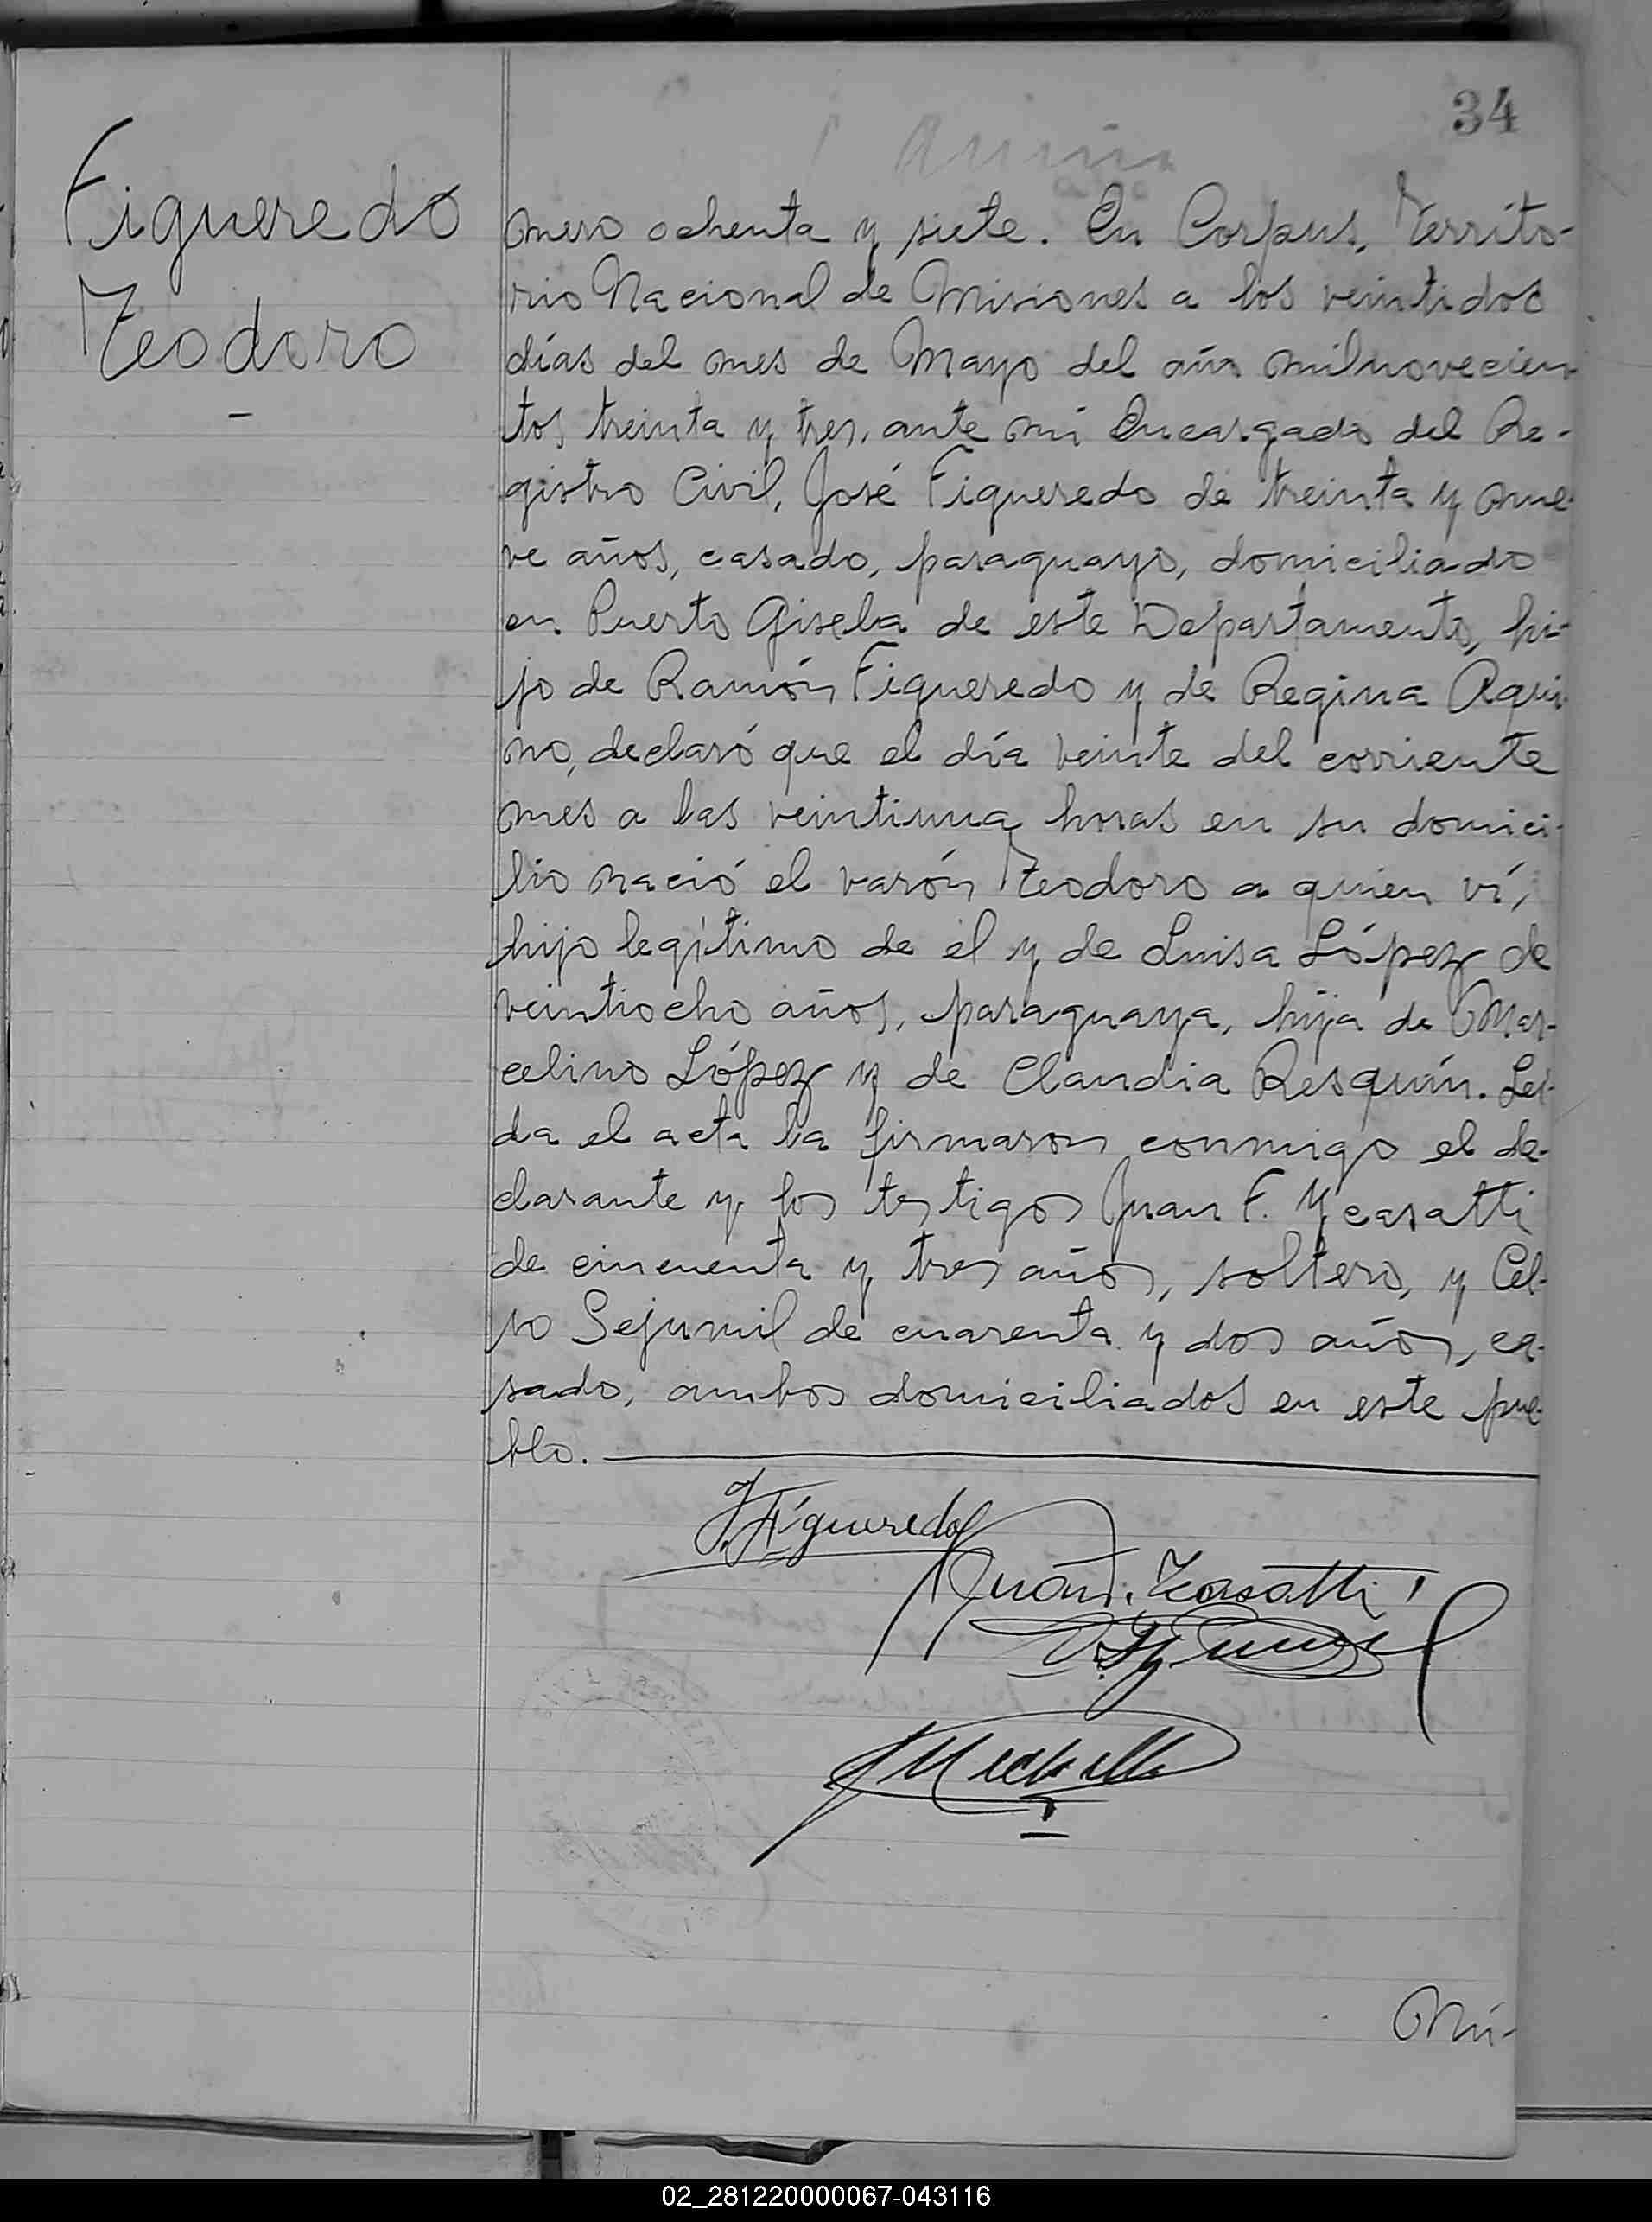 34
Figueredo
Teodoro
-
mero ochenta y siete. En Corpus, Territo-
rio Nacional de Misiones a los veintidos
días del mes de Mayo del año milnovecien-
tos treinta y tres, ante mí Encargado del Re-
gistro Civil, José Figueredo de treinta y nue-
ve años, casado, paraguayo, domiciliado
en Puerto Gisela de este Departamento, hi-
jo de Ramón Figueredo y de Regina Aqui-
no, declaró que el día veinte del corriente
mes a las veintiuna horas en su domici-
lio nació el varón Teodoro a quien ví,
hijo legítimo de él y de Luisa López de
veintiocho años, paraguaya, hija de Mar-
celino López y de Claudia Resquín. Leí-
da el acta la firmaron conmigo el de-
clarante y los testigos Juan F. Ycasatti
de cincuenta y tres años, soltero, y Cel-
so Sejumil de cuarenta y dos años, ca-
sado, ambos domiciliados en este pue-
blo.
J. Figueredo
Juan F. Ycasatti
Nú-
02_281220000067-043116